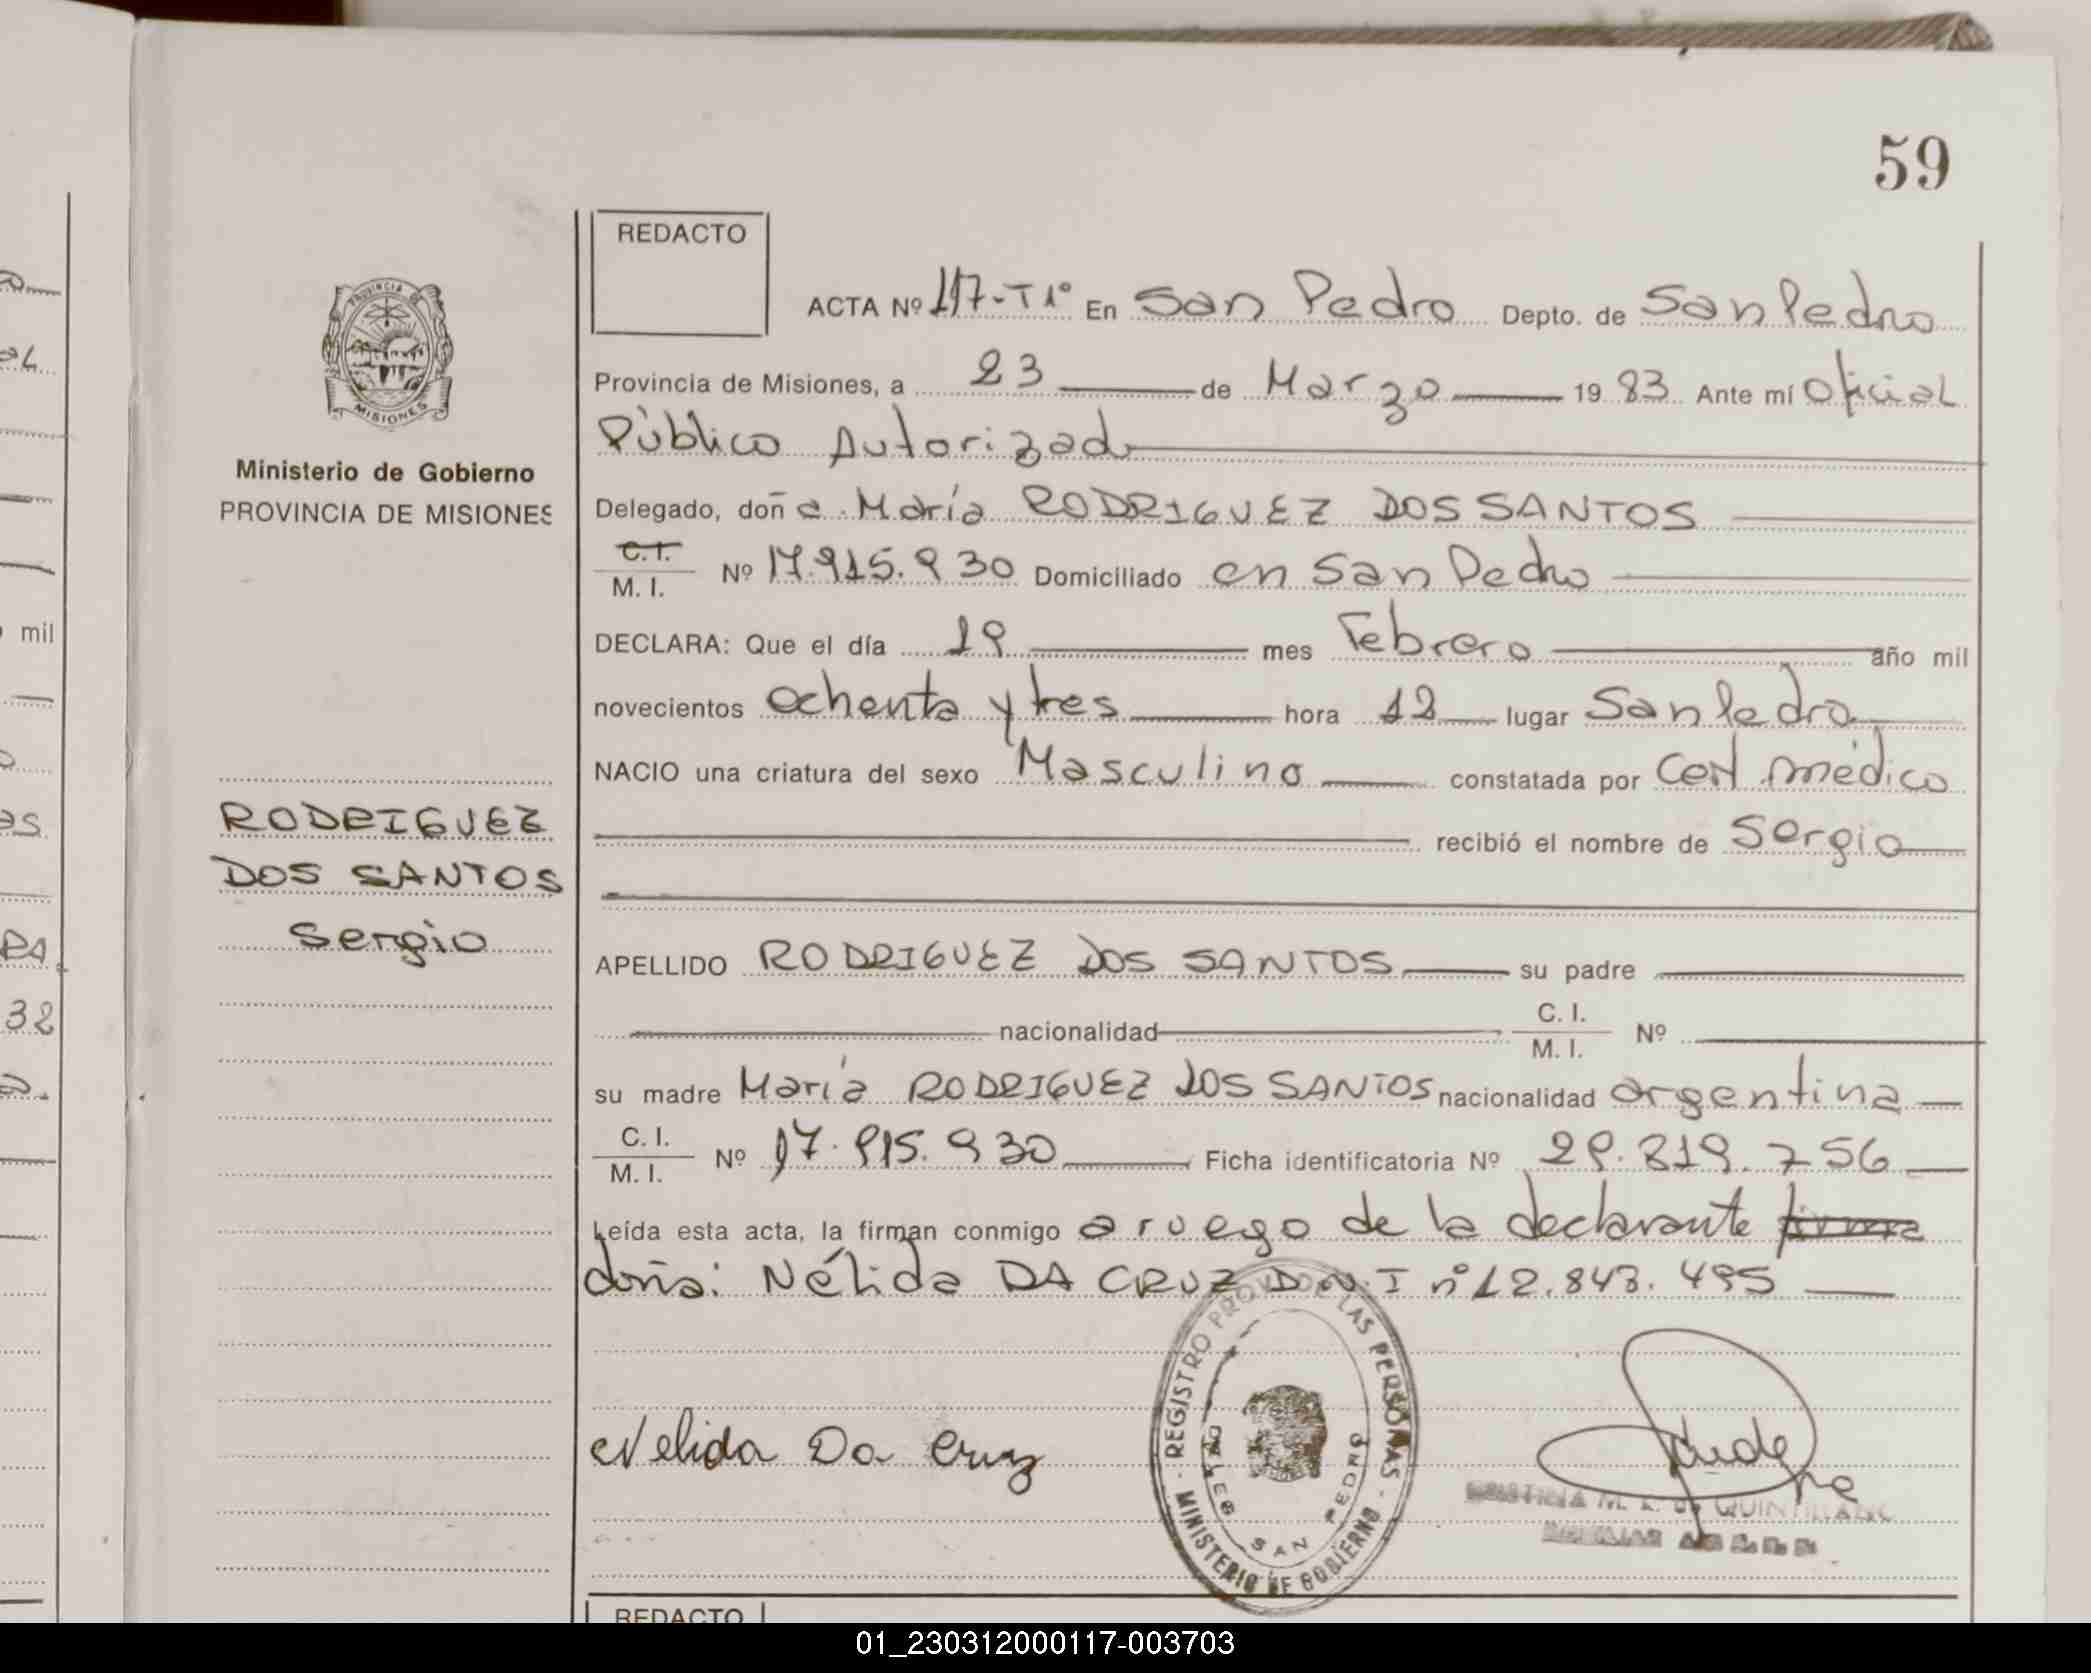 59
REDACTO
ACTA Nº 117-T1º En San Pedro Depto. de San Pedro
Provincia de Misiones, a 23 de Marzo 1983 Ante mí Oficial
Público Autorizado
Delegado, doña María RODRIGUEZ DOS SANTOS
C.I.
M. I. Nº 17.915.930 Domiciliado en San Pedro
DECLARA: Que el día 19 mes Febrero año mil
novecientos ochenta y tres hora 12 lugar San Pedro
NACIO una criatura del sexo Masculino constatada por Cert médico
recibió el nombre de Sergio
APELLIDO RODRIGUEZ DOS SANTOS su padre
nacionalidad C. I.
M. I. Nº
su madre María RODRIGUEZ DOS SANTOS nacionalidad argentina
C. I.
M. I. Nº 17.915.930 Ficha identificatoria Nº 29.819.756
Leída esta acta, la firman conmigo a ruego de la declarante firma
doña: Nélida DA CRUZ D.N.I nº 12.843.495
Nelida Da Cruz
REGISTRO PROV. DE LAS PERSONAS
SAN PEDRO
MINISTERIO DE GOBIERNO
QUINTILLANO
REDACTO
PROVINCIA DE
MISIONES
Ministerio de Gobierno
PROVINCIA DE MISIONES
RODRIGUEZ
DOS SANTOS
Sergio
mil
as
32
01_230312000117-003703